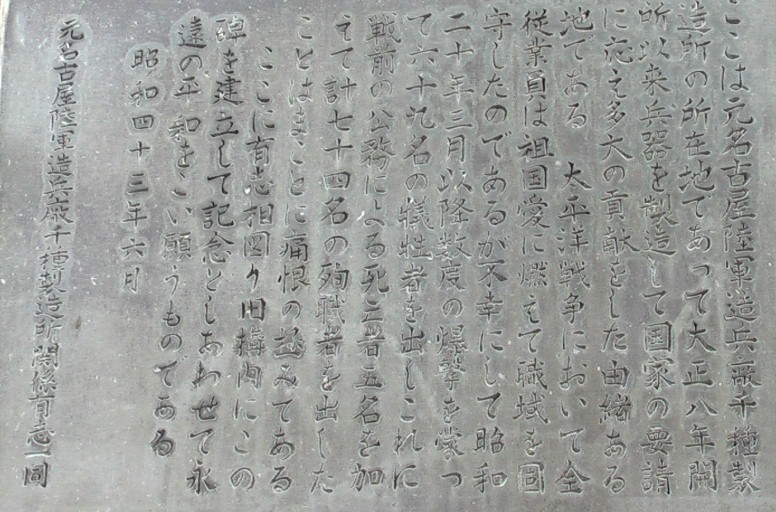 ここは元名古屋陸軍造兵廠千種製
造所の所在地であって大正八年開
所以来兵器を製造して国家の要請
に応え多大の貢献をした由緒ある
地である　太平洋戦争において全
従業員は祖国愛に燃えて職域を固
守したのであるが不幸にして昭和
二十年三月以降数度の爆撃を蒙っ
て六十九名の犠牲者を出しこれに
戦前の公務による死亡者五名を加
えて計七十四名の殉職者を出した
ことはまことに痛恨の極みである
ここに有志相図り旧構内にこの
碑を建立して記念としあわせて永
遠の平和をこい願うものである
昭和四十三年六月
元名古屋陸軍造兵廠千種製造所関係有志一同